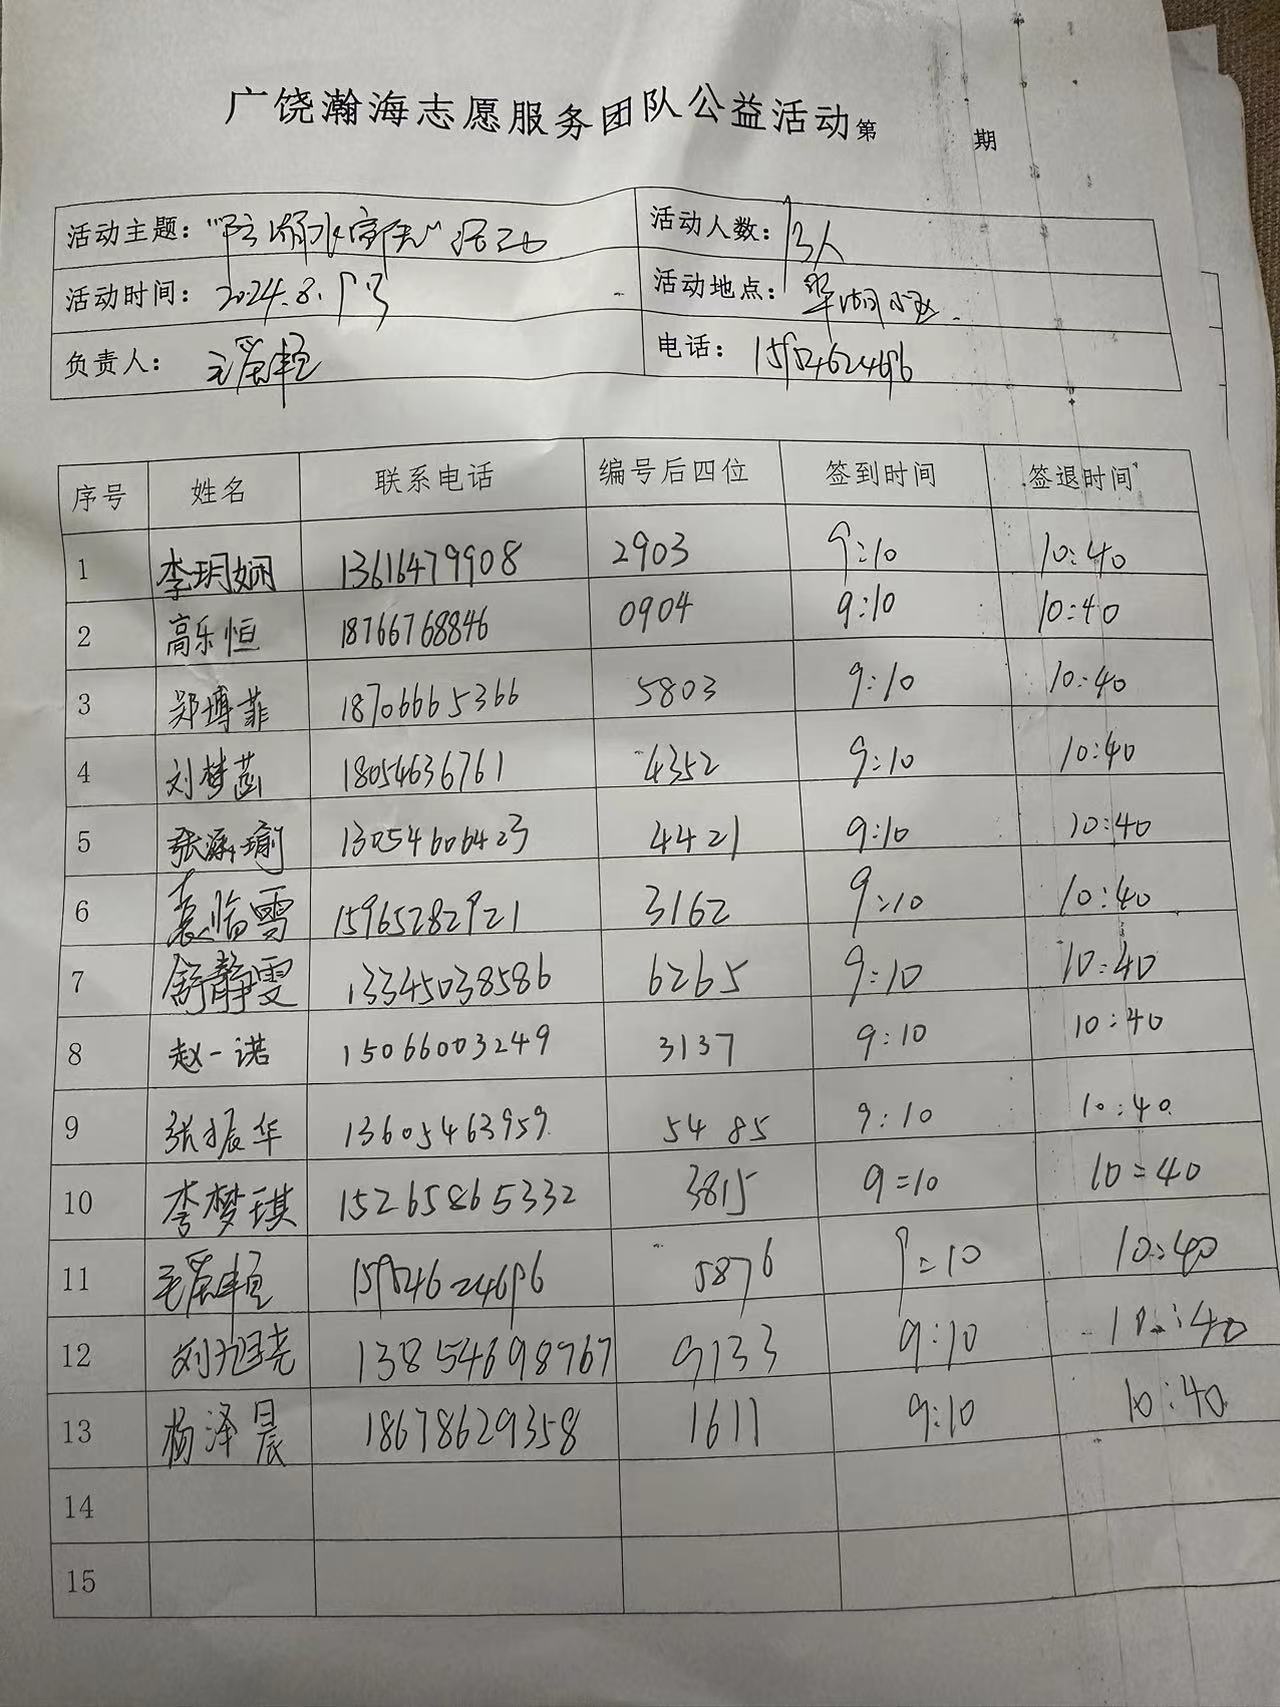 广饶瀚海志愿服务团队公益活动第 期
活动主题：“防溺水宣传”活动 活动人数：13人
活动时间：2024.8. 活动地点：翠湖小区.
负责人： 电话：15954624696
序号 姓名 联系电话 编号后四位 签到时间 签退时间
1 李玥娴 13616479908 2903 9:10 10:40
2 高乐恒 18766768846 0904 9:10 10:40
3 郑博菲 18706665366 5803 9:10 10:40
4 刘梦菡 18054636761 4352 9:10 10:40
5 张瀛瑜 13054606423 4421 9:10 10:40
6 袁临雪 15965282921 3162 9:10 10:40
7 舒静雯 13345038586 6265 9:10 10:40
8 赵一诺 15066003249 3137 9:10 10:40
9 张振华 13605463959 5485 9:10 10:40
10 李梦琪 15265865332 3815 9:10 10:40
11 15954624696 5876 9:10 10:40
12 刘旭尧 13854698767 9133 9:10 10:40
13 杨泽晨 18678629358 1611 9:10 10:40
14
15